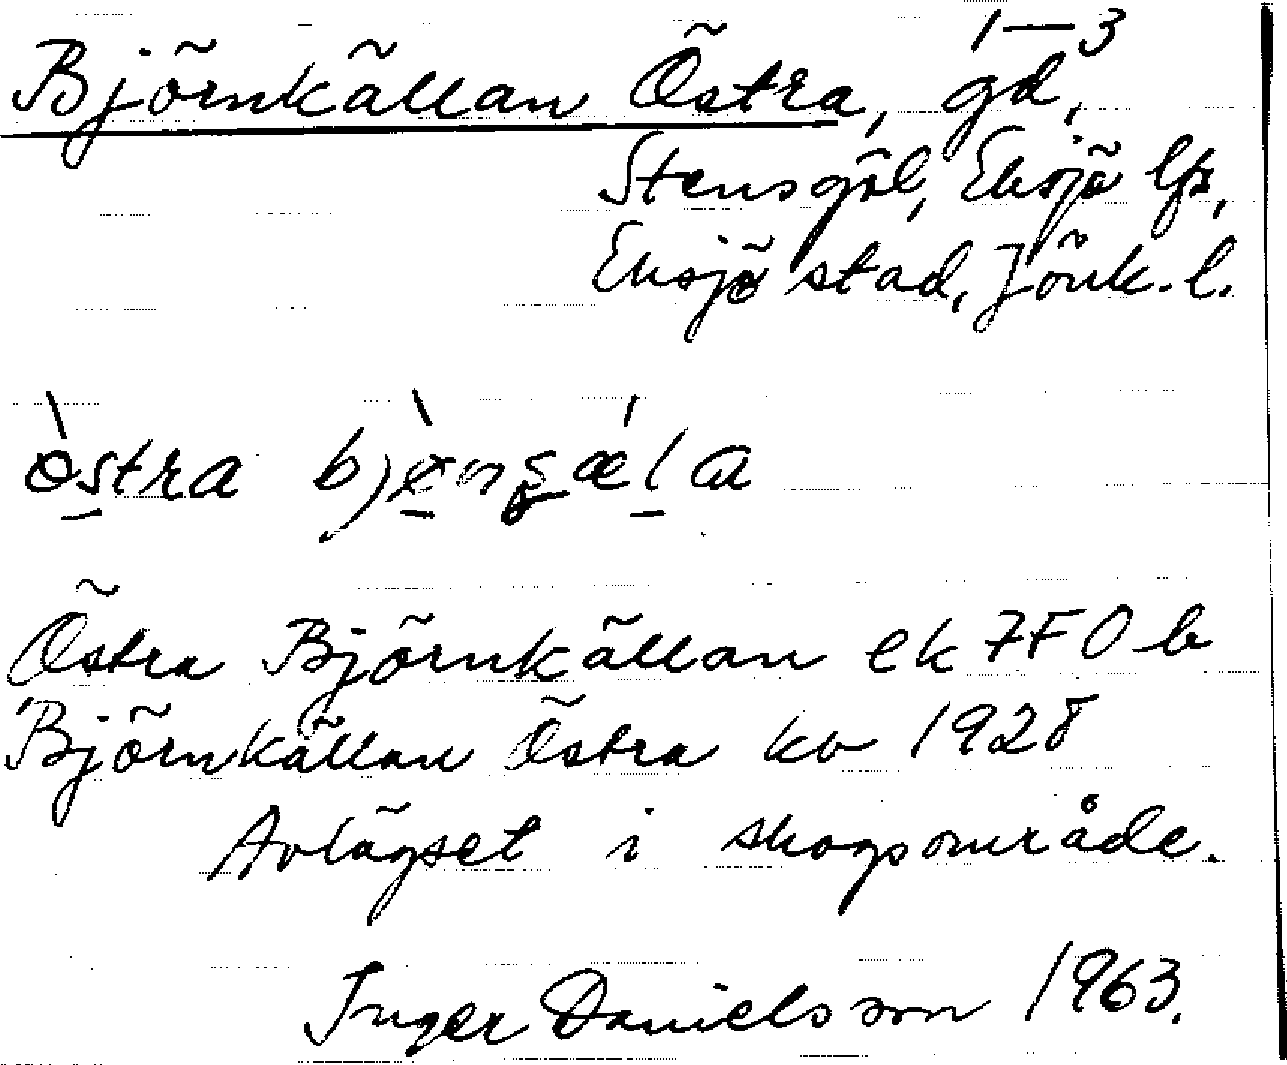 1—3
Björnkällan Östra, gd,
Stensgöl, Eksjö lfs,
Eksjö stad, Jönk. l.
östra
Östra Björnkällan ek 7F0b
Björnkällan Östra kv 1928
Avlägset i skogsområde.
Inger Danielsson 1963.